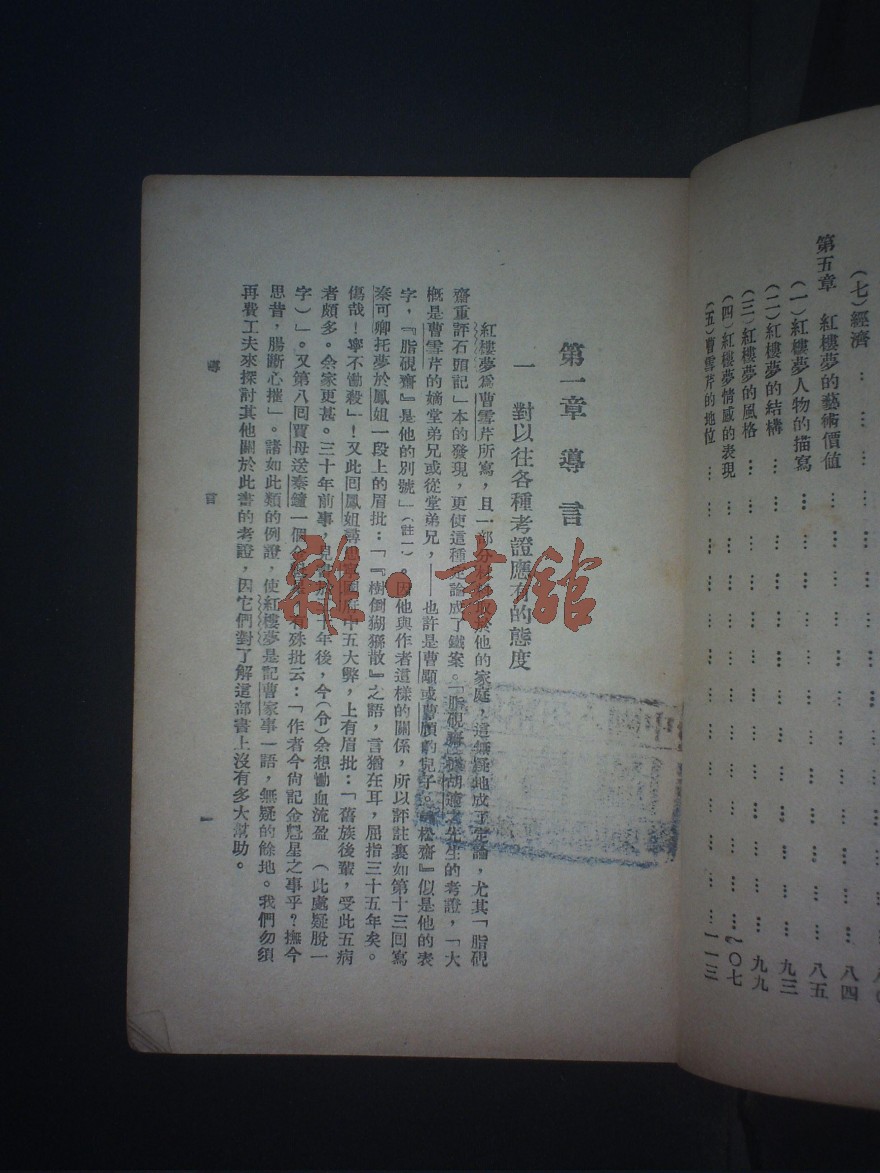 (七)經濟
第五章 紅樓夢的藝術價值 … 八四
(一)紅樓夢人物的描寫 … 八五
(二)紅樓夢的結構 … 九三
(三)紅樓夢的風格 … 九九
(四)紅樓夢情感的表現 … 一〇七
(五)曹雪芹的地位 … 一一三
第一章 導言
一 對以往各種考證應有的態度
紅樓夢爲曹雪芹所寫,且一部分材料取於他的家庭,這無疑地成了定論,尤其「脂硯
齋重評石頭記」本的發現,更使這種定論成了鐵案。「脂硯齋據胡適之先生的考證,「大
概是曹雪芹的嫡堂弟兄或從堂弟兄,——也許是曹顒或曹頎的兒子。松齋』似是他的表
字,『脂硯齋』是他的別號」(註一)。因他與作者這樣的關係,所以評註裏如第十三回寫
秦可卿托夢於鳳姐一段上的眉批:「『樹倒猢猻散』之語,言猶在耳,屈指三十五年矣。
傷哉!寧不慟殺」!又此回鳳姐尋思寧國府中五大弊,上有眉批:「舊族後輩,受此五病
者頗多。余家更甚。三十年前事,見書於三十年後,今(令)余想慟血流盈 (此處疑脫一
字)」。又第八回賈母送秦鐘一個金魁星,有殊批云:「作者今尙記金魁星之事乎?撫今
思昔,腸斷心摧」。諸如此類的例證,使紅樓夢是記曹家事一語,無疑的餘地。我們勿須
再費工夫來探討其他關於此書的考證,因它們對了解這部書上沒有多大幫助。
導言
一
雜·書館